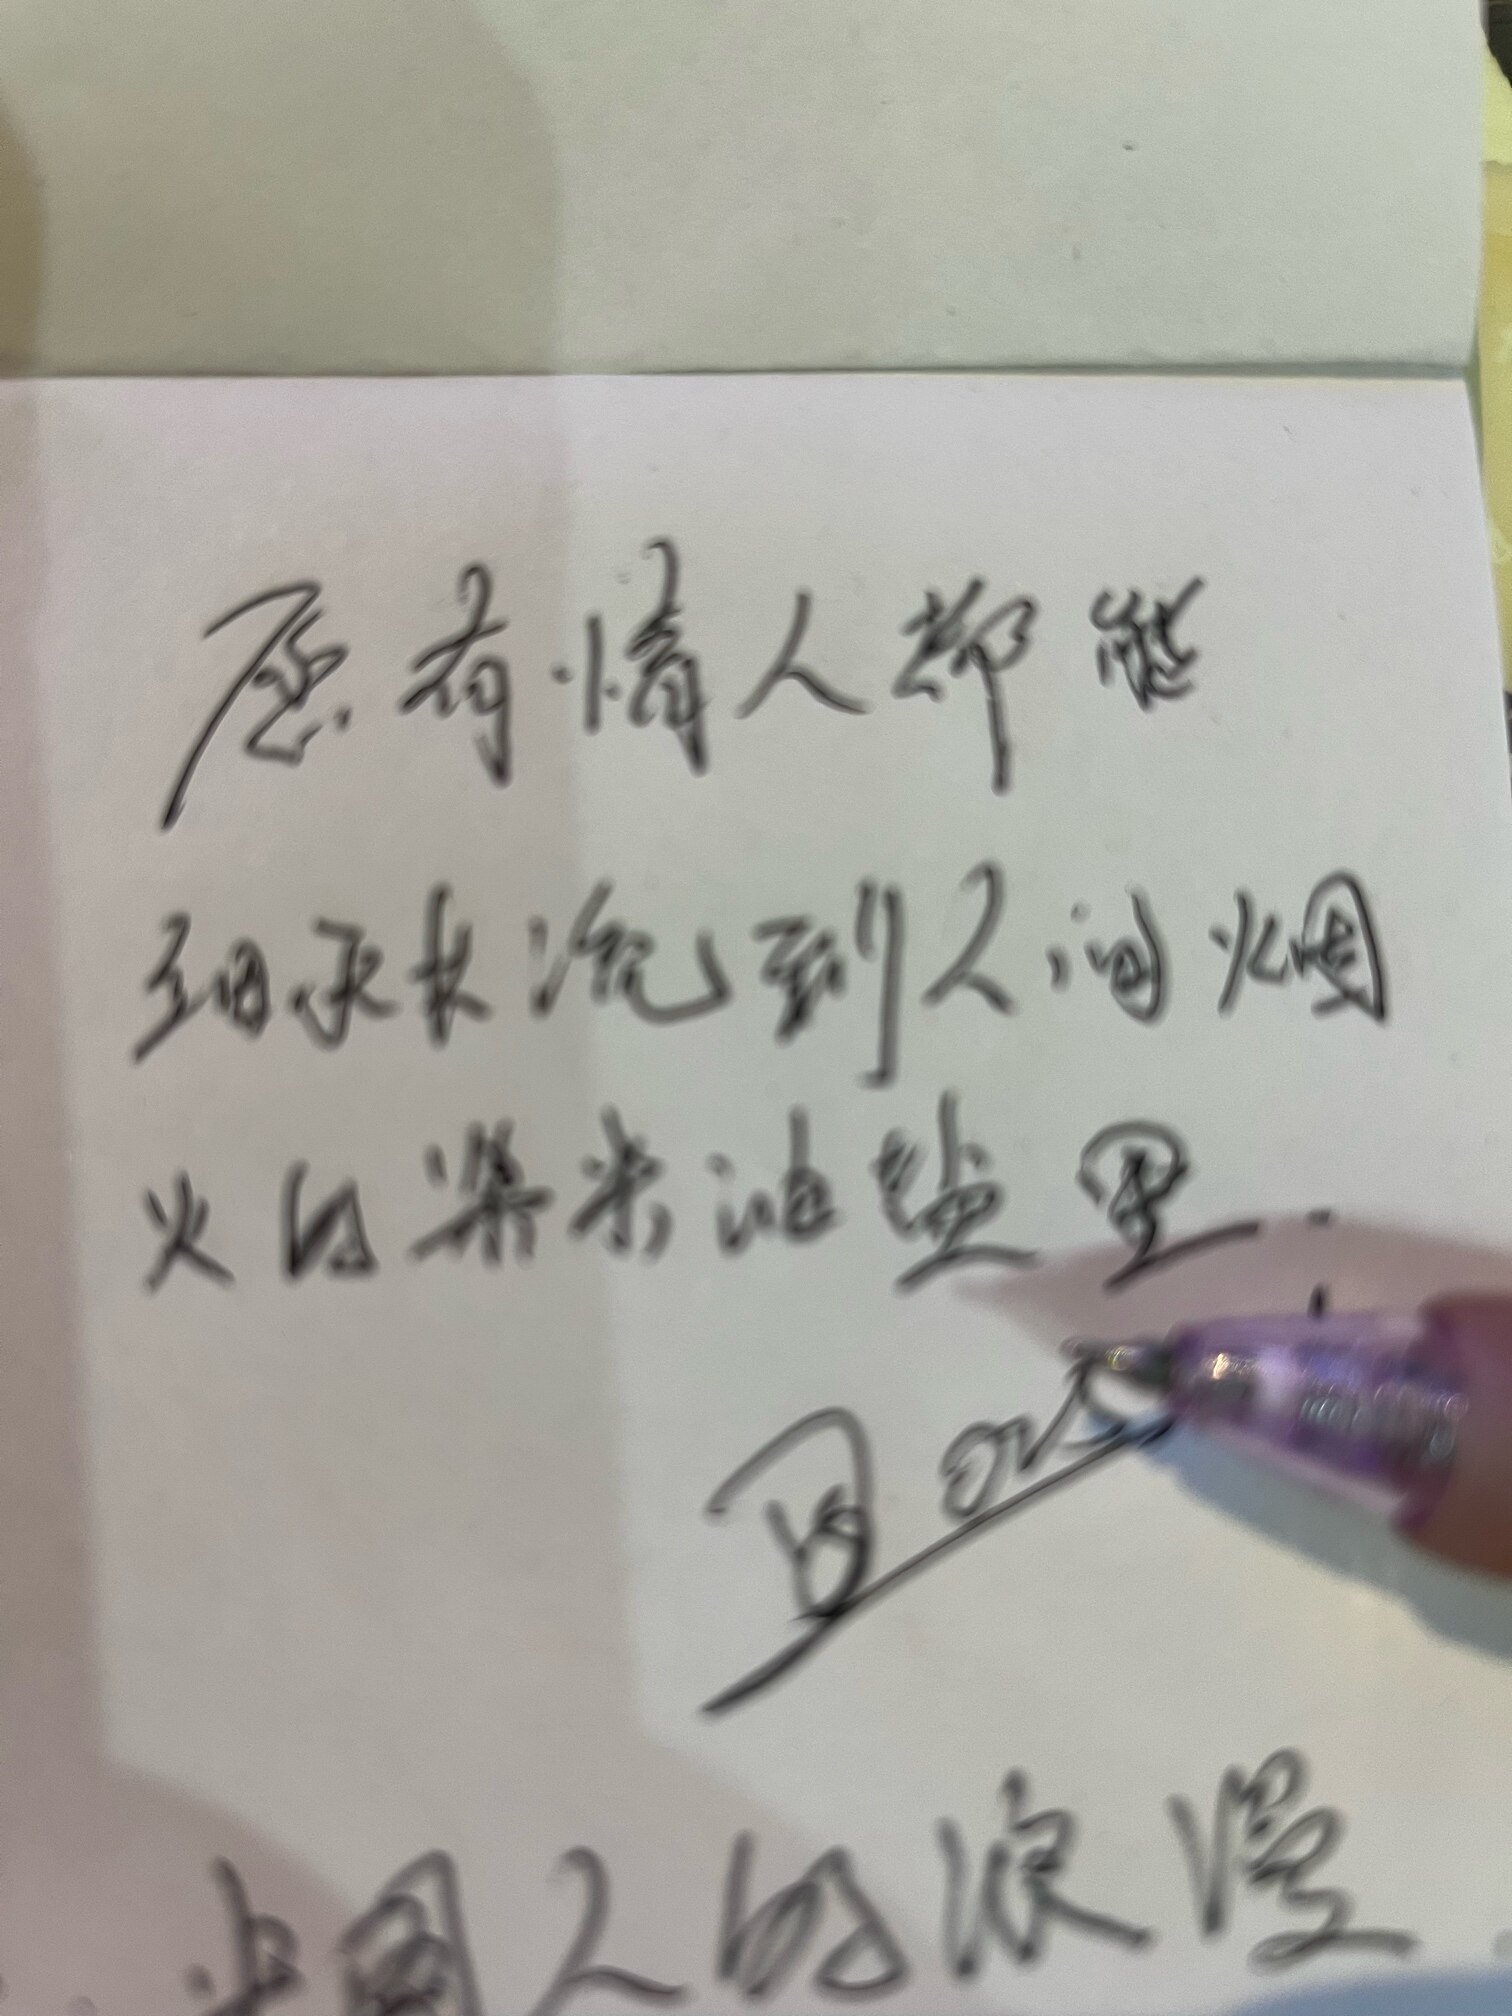 愿有情人都能
细水长流到人间烟
火的柴米油盐里
中国人的浪漫